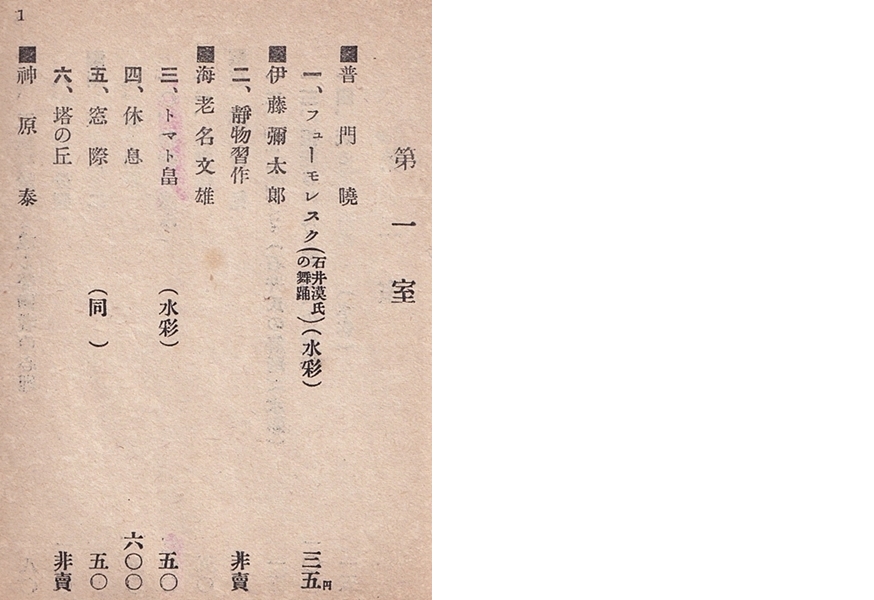 1
第一室
■普門曉
一、フューモレスク(石井漠氏の舞踊)(水彩) 三五円
■伊藤彌太郎
二、靜物習作 非賣
■海老名文雄
三、トマト畠 (水彩) 五〇
四、休息 六〇〇
五、窓際 (同) 五〇
六、塔の丘 非賣
■神原泰